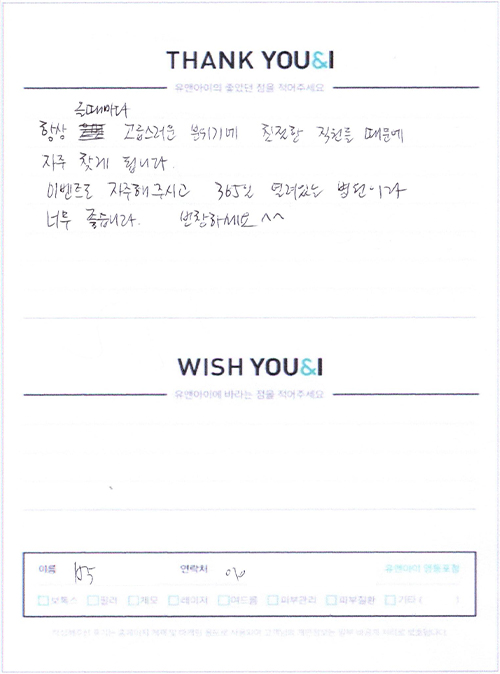 THANK YOU&I
유앤아이의 좋았던 점을 적어주세요
올때마다
항상 고급스러운 분위기에 친절한 직원들 때문에
자주 찾게 됩니다.
이벤트도 자주해주시고 365일 열려있는 병원이라
너무 좋습니다. 번창하세요^^
WISH YOU&I
유앤아이에 바라는 점을 적어주세요
이름 연락처 010 유앤아이 영등포점
보톡스 필러 제모 레이저 여드름 피부관리 피부질환 기타 ( )